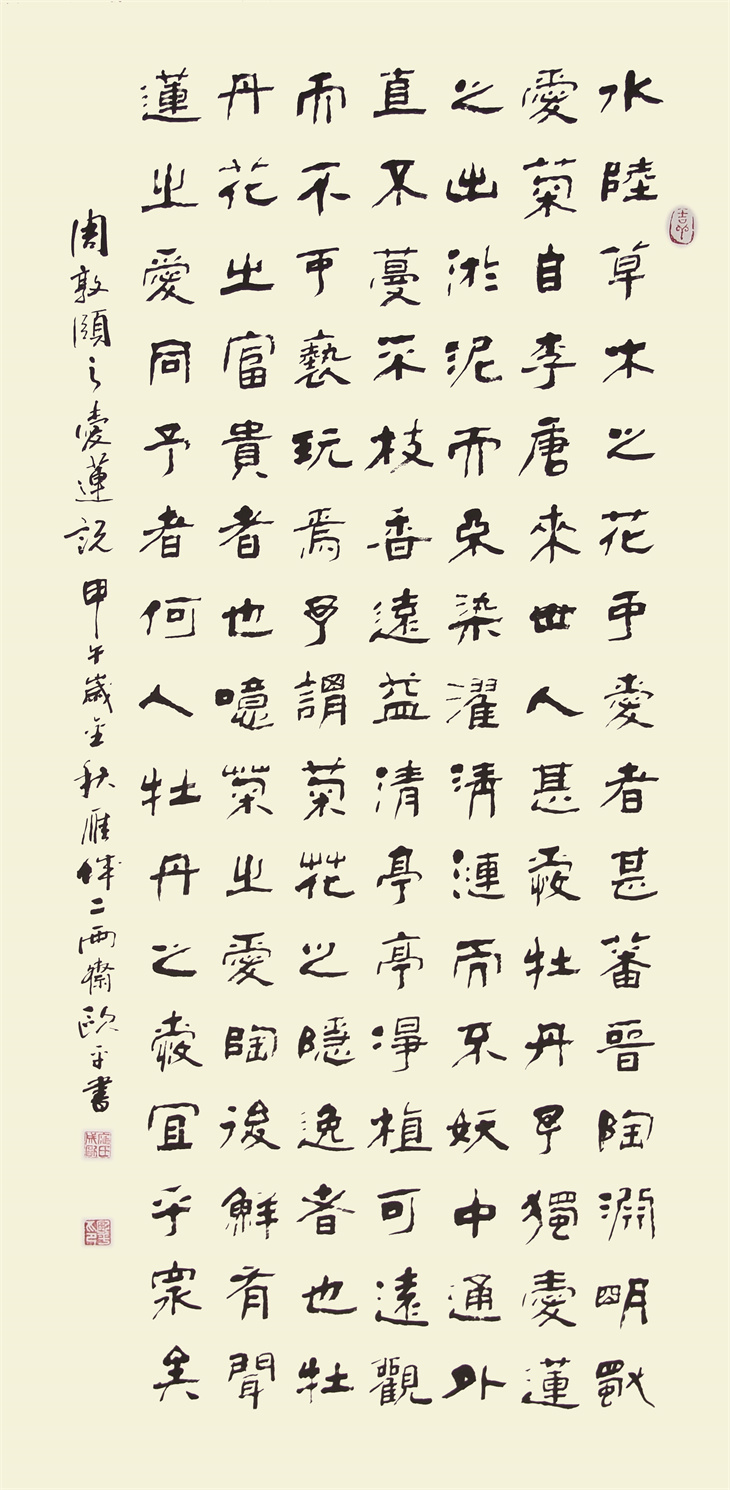 水陸草木之花可愛者甚蕃晉陶淵明獨
愛菊自李唐來世人甚愛牡丹予獨愛蓮
之出淤泥而不染濯清漣而不妖中通外
直不蔓不枝香遠益清亭亭淨植可遠觀
而不可褻玩焉予謂菊花之隱逸者也牡
丹花之富貴者也噫菊之愛陶後鮮有聞
蓮之愛同予者何人牡丹之愛宜乎眾矣
周敦頤之愛蓮說 甲午歲金秋雁城二兩齋歐平書